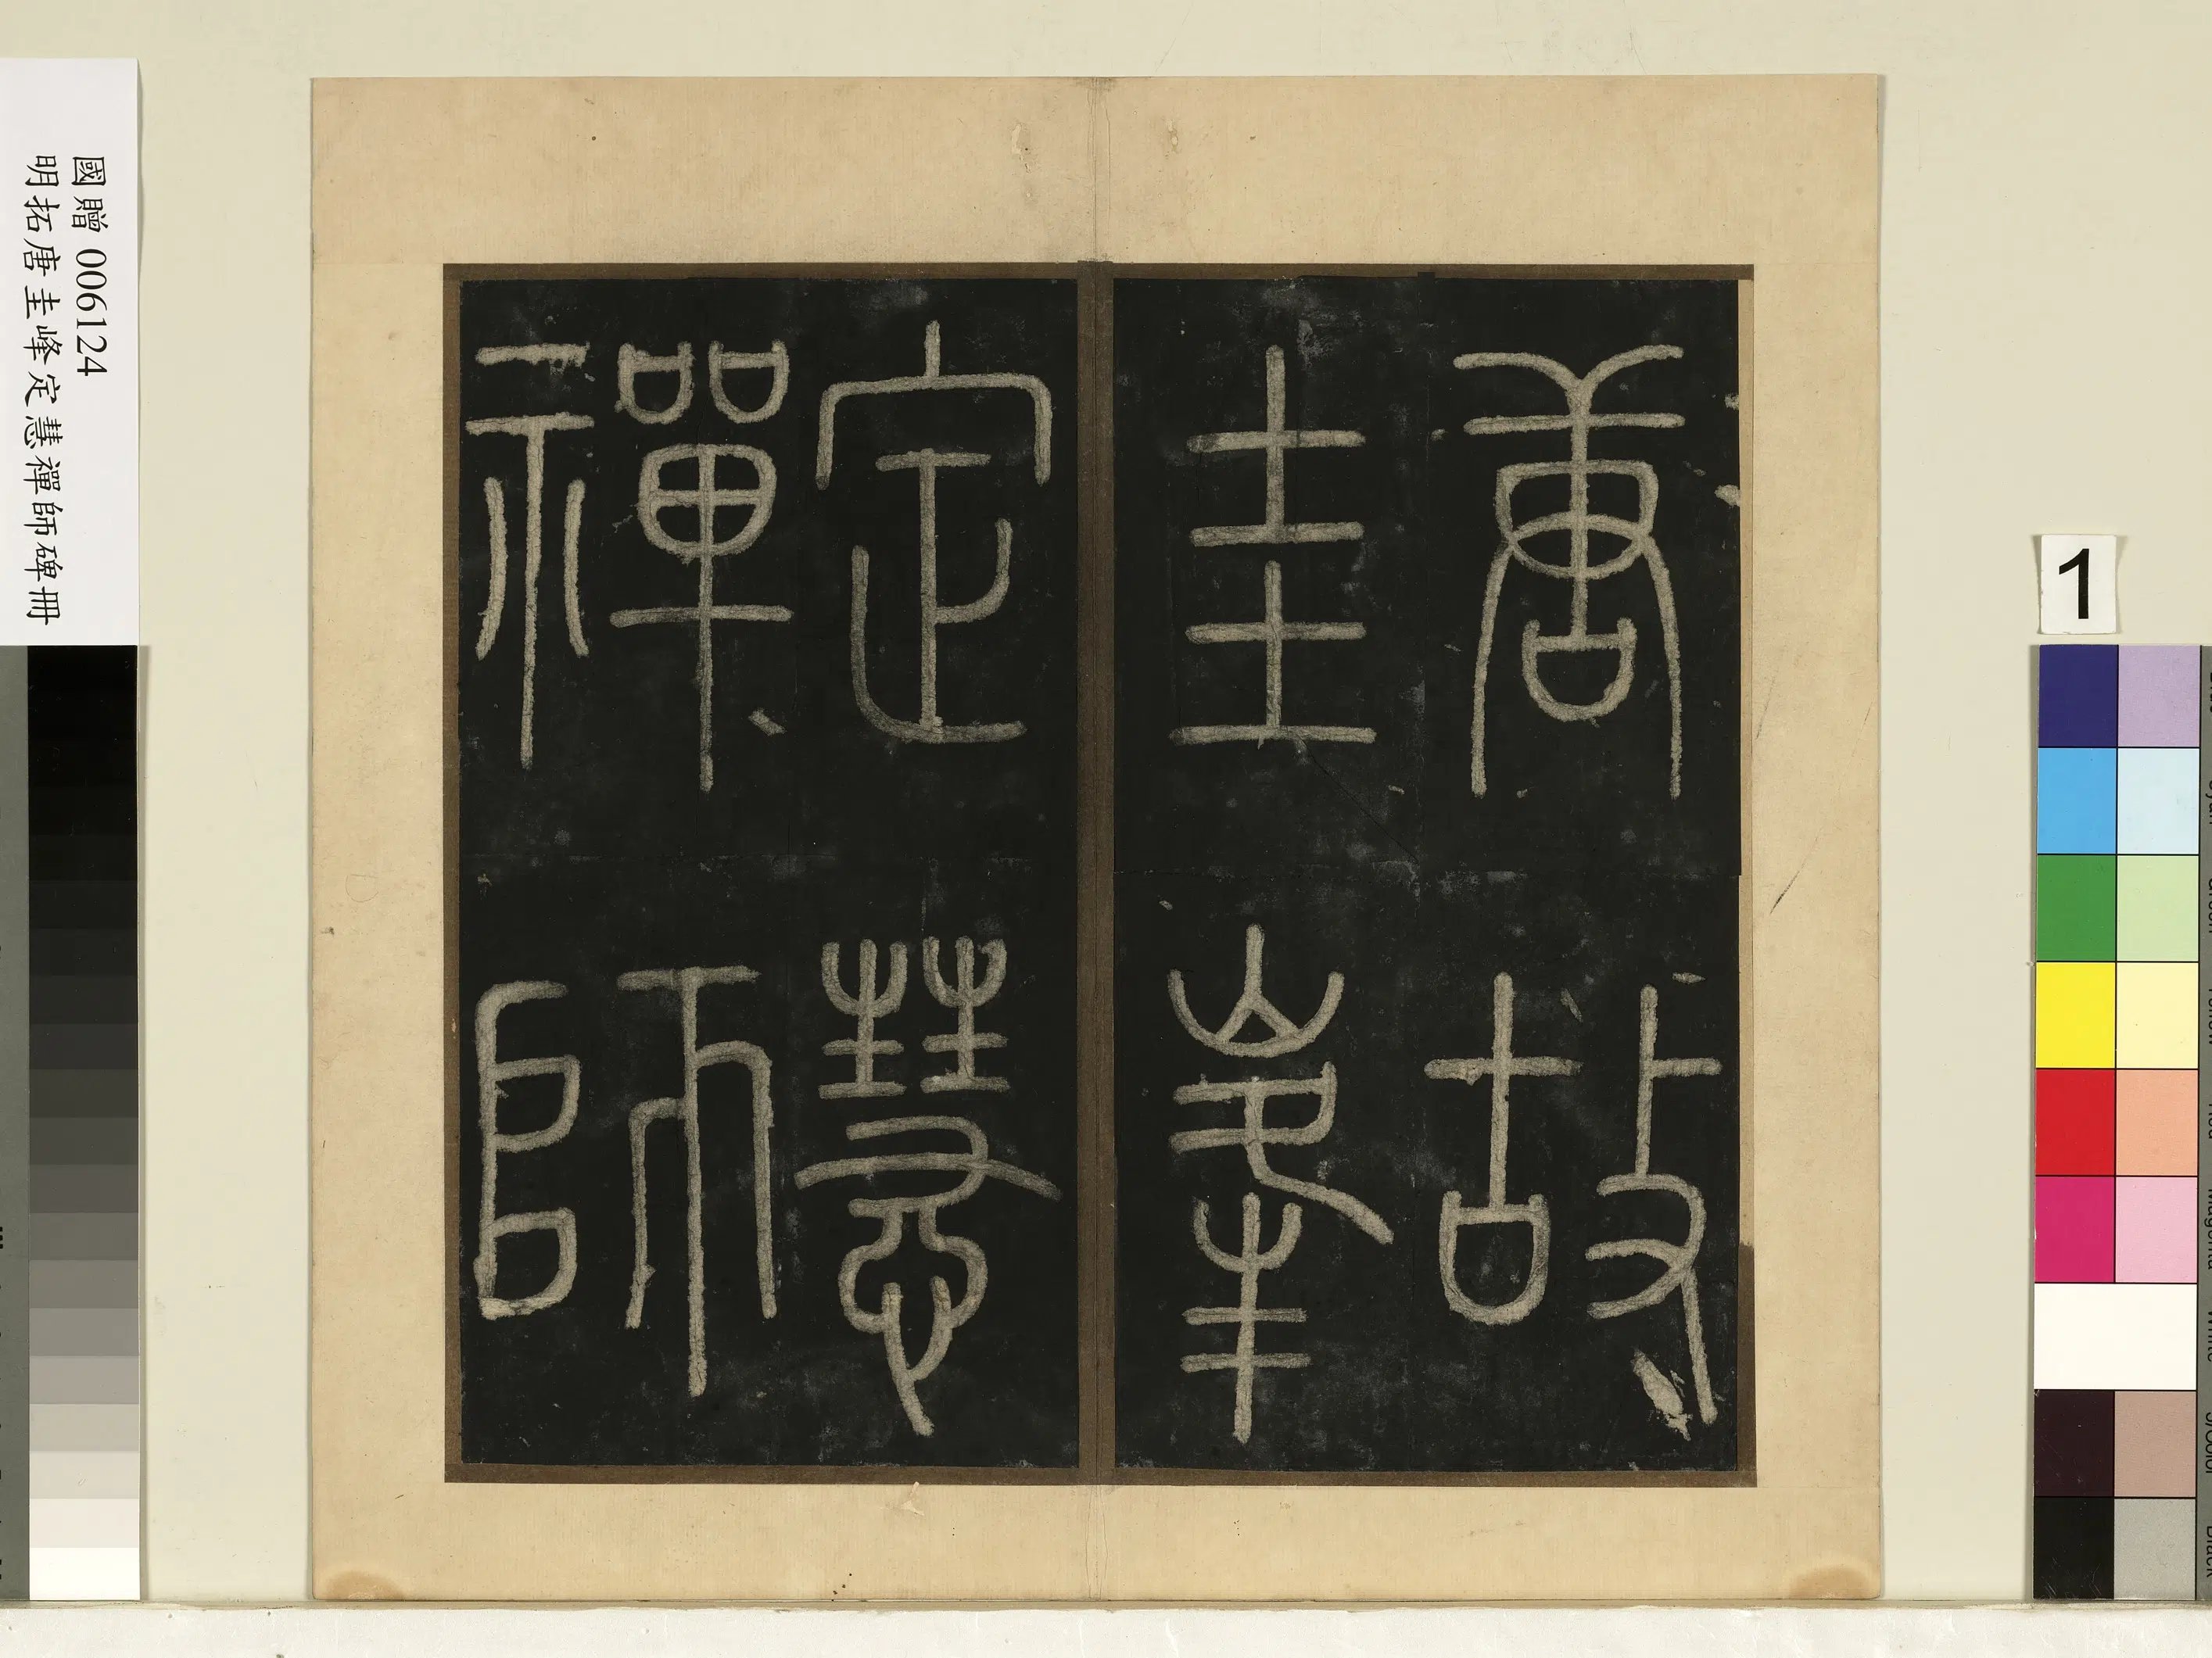 唐故
圭峯
定慧
禪師
國贈 006124
明拓唐圭峰定慧禪師碑冊
1